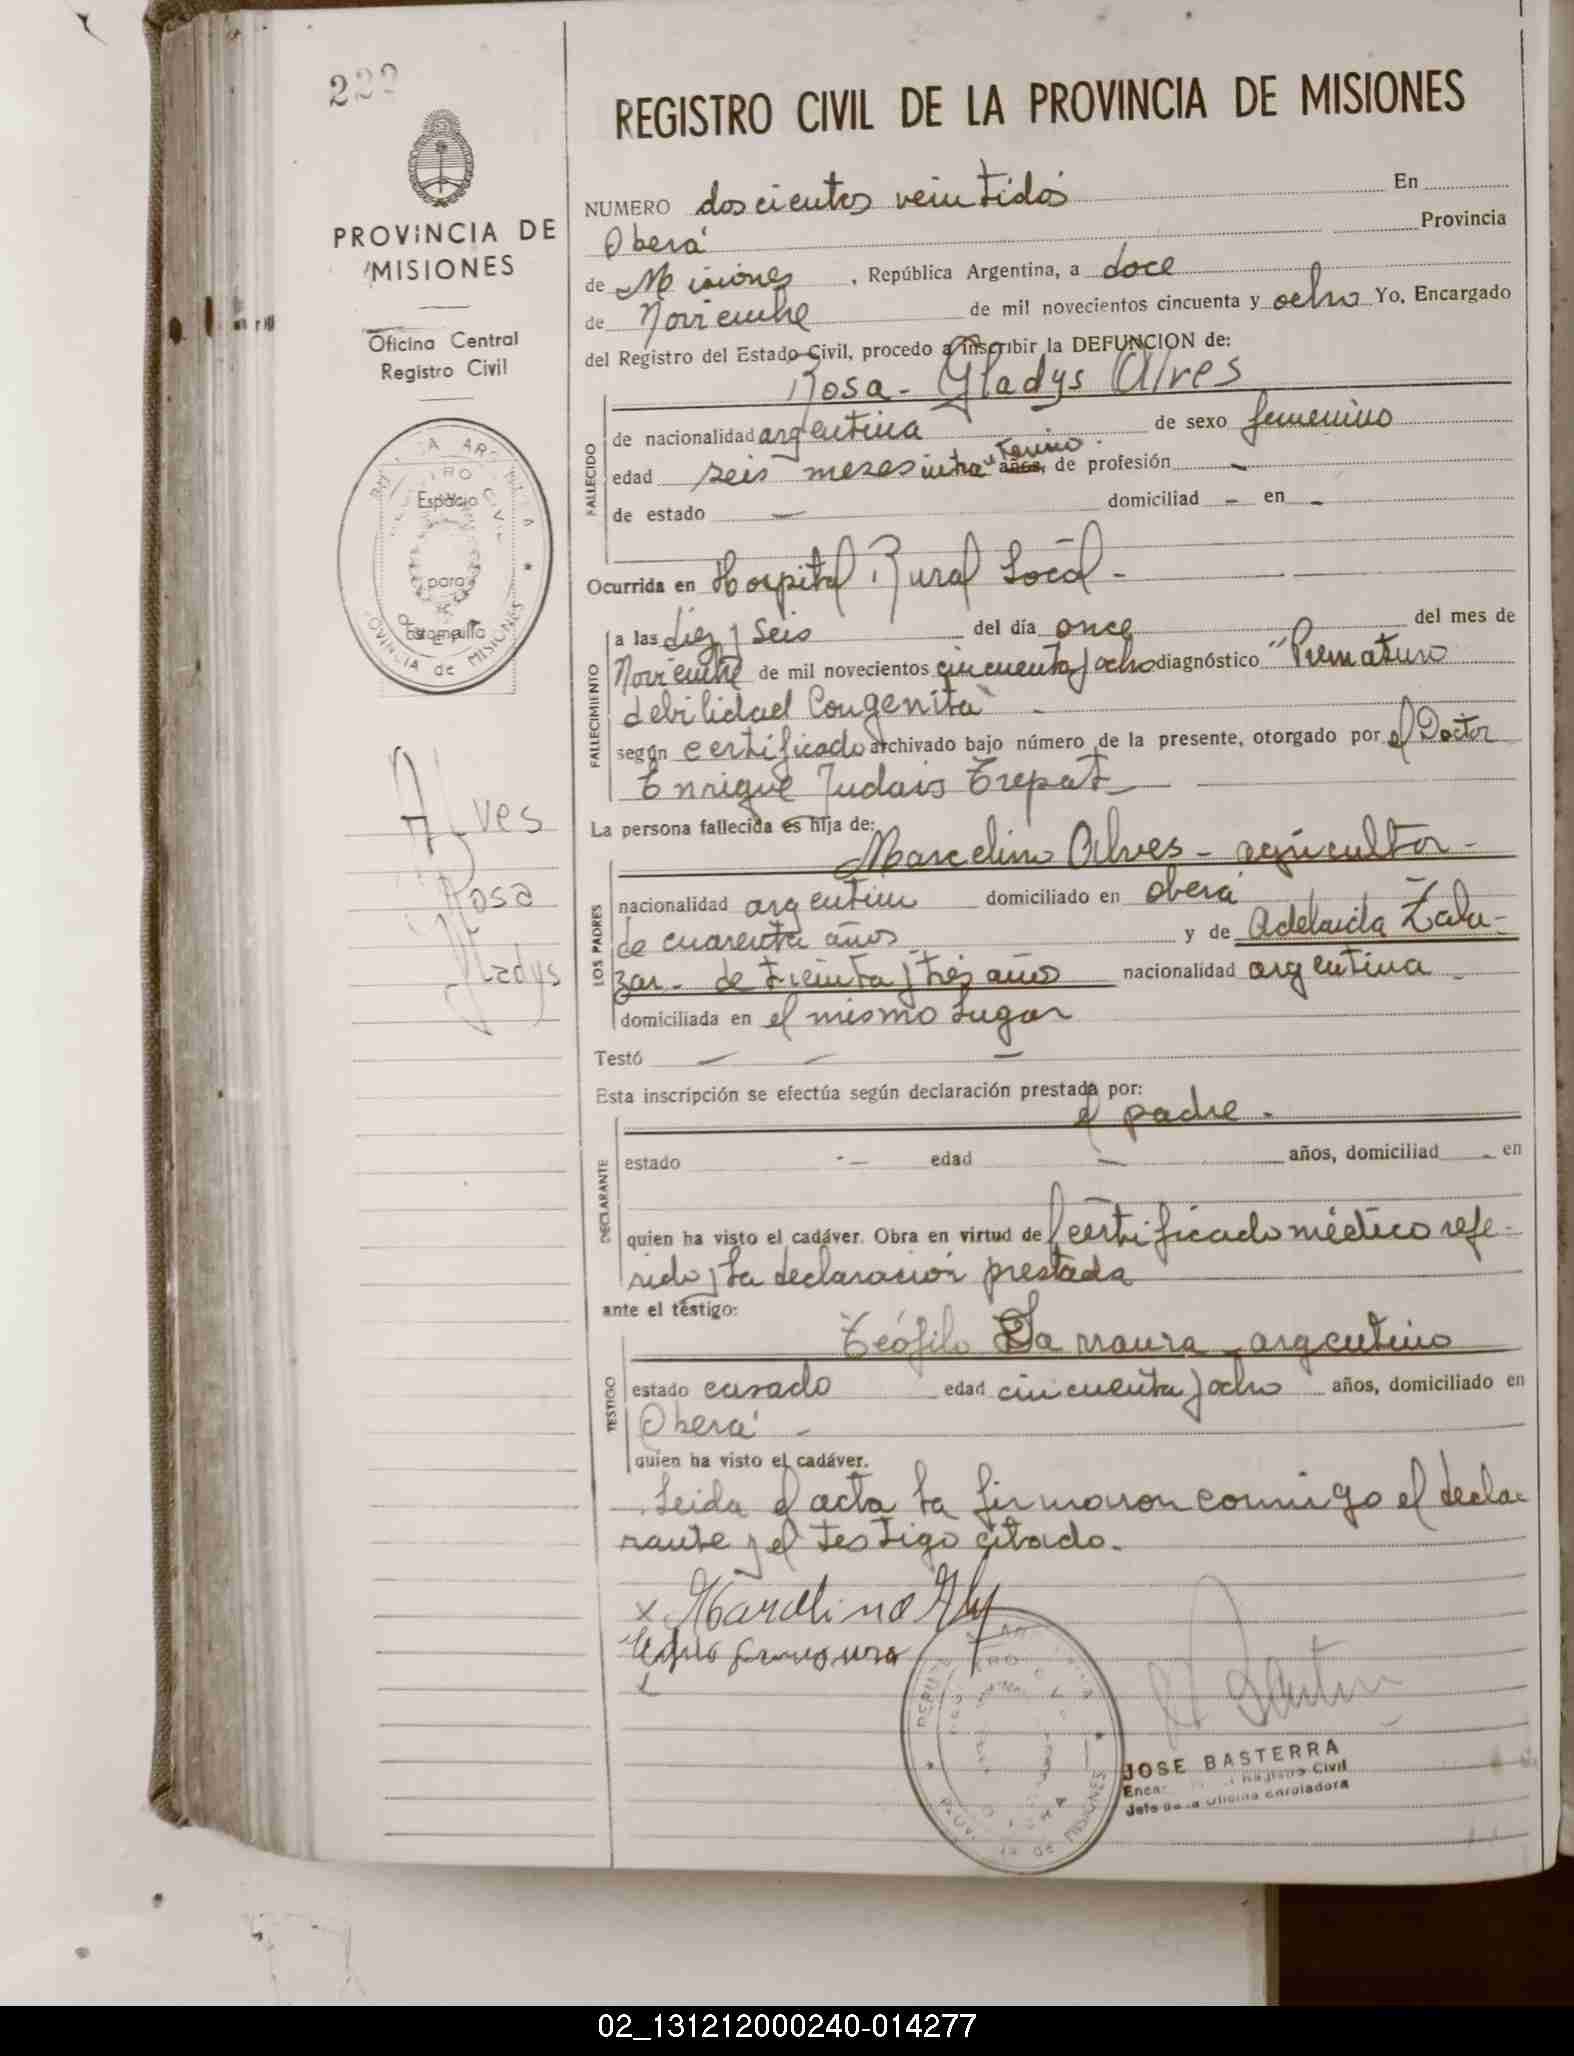 222
PROVINCIA DE
MISIONES
Oficina Central
Registro Civil
Espacio
para
Estampilla
PROVINCIA de MISIONES
Alves
Rosa
Gladys
REGISTRO CIVIL DE LA PROVINCIA DE MISIONES
NUMERO doscientos veintidós En
Oberá Provincia
de Misiones, República Argentina, a doce
de Noviembre de mil novecientos cincuenta y ocho Yo, Encargado
del Registro del Estado Civil, procedo a inscribir la DEFUNCION de:
Rosa - Gladys Alves
FALLECIDO
de nacionalidad argentina de sexo femenino
edad seis meses intra uterino años, de profesión -
de estado - domiciliad - en -
Ocurrida en Hospital Rural Local -
FALLECIMIENTO
a las diez y seis del día once del mes de
Noviembre de mil novecientos cincuenta y ocho diagnóstico "Prematuro
debilidad Congenita" -
según certificado archivado bajo número de la presente, otorgado por el Doctor
Enrique Judais Trepat -
La persona fallecida es hija de:
Marcelino Alves - agricultor -
LOS PADRES
nacionalidad argentina domiciliado en oberá
de cuarenta años y de Adelaida Zala-
zar - de treinta y tres años nacionalidad argentina -
domiciliada en el mismo lugar
Testó - - -
Esta inscripción se efectúa según declaración prestada por:
el padre -
DECLARANTE
estado - edad - años, domiciliad - en
quien ha visto el cadáver. Obra en virtud del certificado médico refe-
rido y la declaración prestada
ante el testigo:
Teófilo La maura - argentino
TESTIGO
estado casado edad cincuenta y ocho años, domiciliado en
Oberá -
quien ha visto el cadáver.
Leida el acta la firmaron conmigo el decla-
rante y el testigo citado.
x Marcelino
x
JOSE BASTERRA
Registro Civil
Jefe de la Oficina Enroladora
02_131212000240-014277